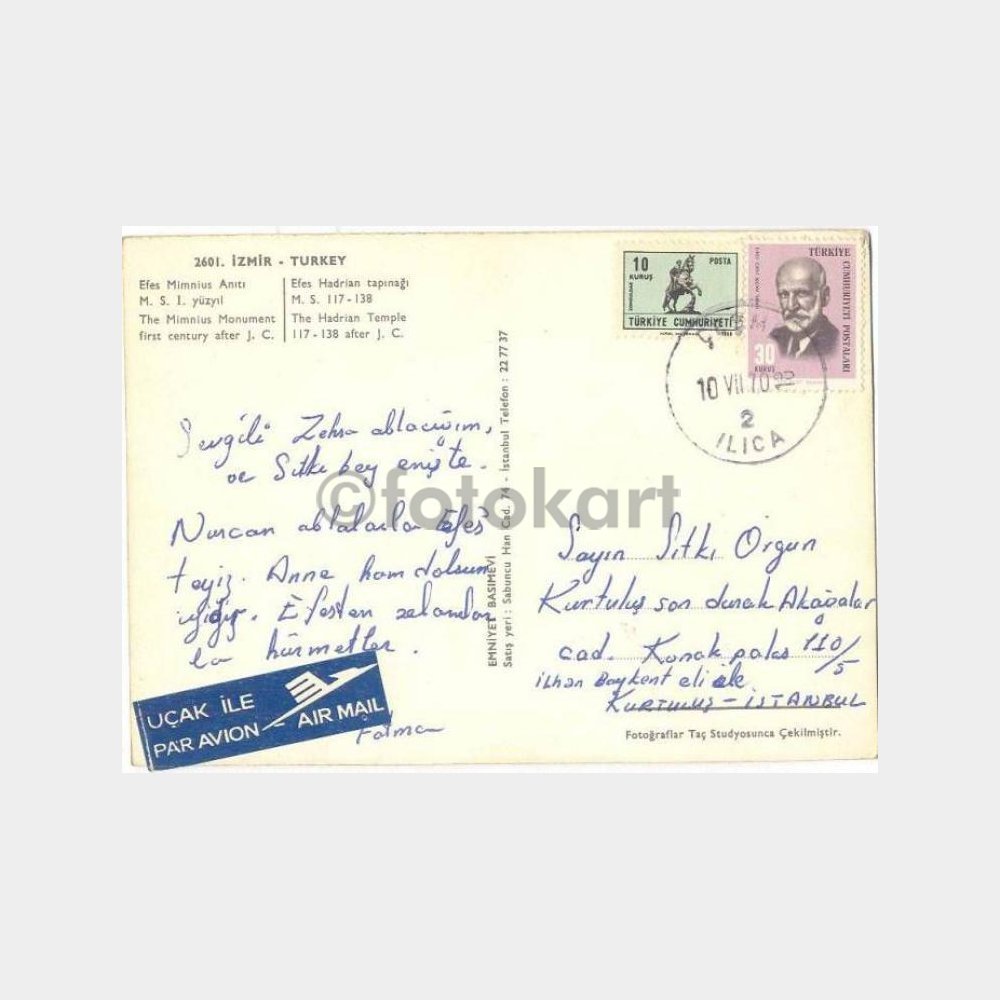 2601. İZMİR - TURKEY
Efes Mimnius Anıtı
M. S. I. yüzyıl
The Mimnius Monument
first century after J. C.
Efes Hadrian tapınağı
M. S. 117-138
The Hadrian Temple
117-138 after J. C.
10 KURUŞ
POSTA
TÜRKİYE CUMHURİYETİ
TÜRKİYE CUMHURİYETİ POSTALARI
30 KURUŞ
10 VII 70
2
ILICA
Sevgili Zehra ablacığım,
ve Sıtkı bey enişte.
Nurcan ablalarla Efes'
teyiz. Anne hamdolsun
iyidir. Efesten selamlar
la hürmetler.
Fatma
EMNİYET BASIMEVİ
Satış yeri: Sabuncu Han Cad. 74 - İstanbul Telefon: 22 77 37
©fotokart
Sayın Sıtkı Orgun
Kurtuluş son durak Akağalar
cad. Konak palas 110/5
ilhan Baykent eli ile
KURTULUŞ - İSTANBUL
UÇAK İLE
PAR AVION AIR MAIL
Fotoğraflar Taç Studyosunca Çekilmiştir.